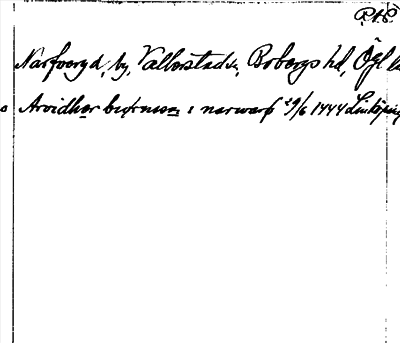 P.A.Ö
Narfveryd, by, Vallerstads, Bobergs hd, Ögl
Arvidher biørnson i narwarp 29/6 1444 Linköping